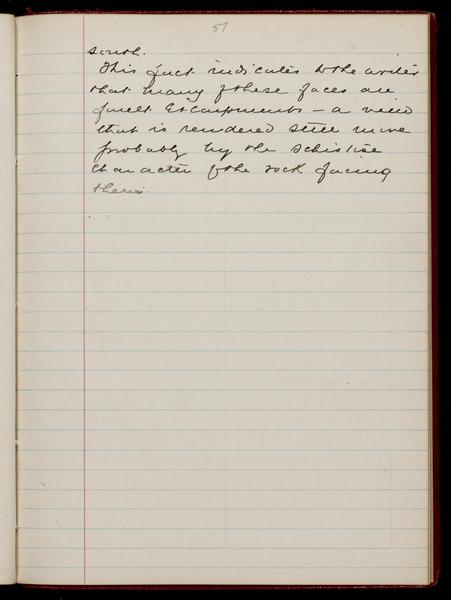 51
south.
This fact indicates to the writer
that many of these faces are
fault Escarpments – a view
that is rendered still more
probably by the schistise
character of the rock facing
them.